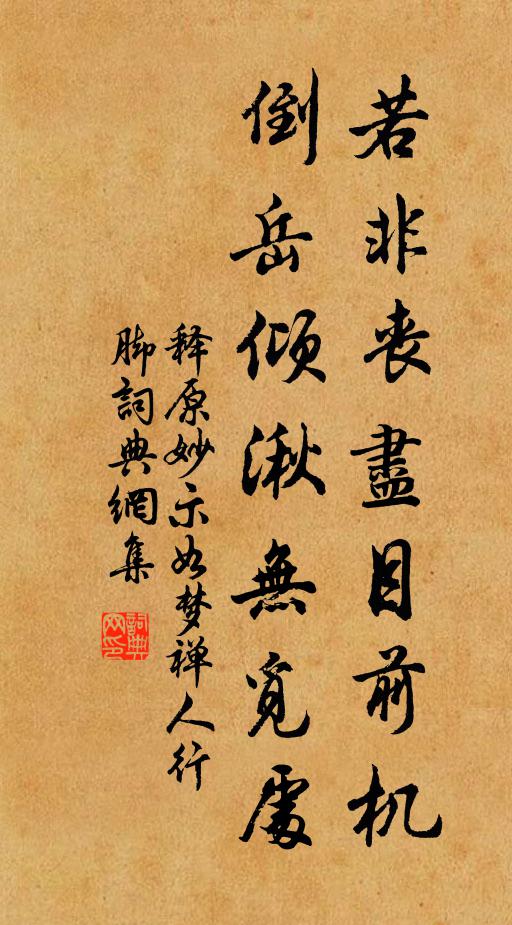 若非丧盡目前机
倒岳倾湫無覓處
释原妙示如梦禅人行
脚詞典網集
詞典
网印